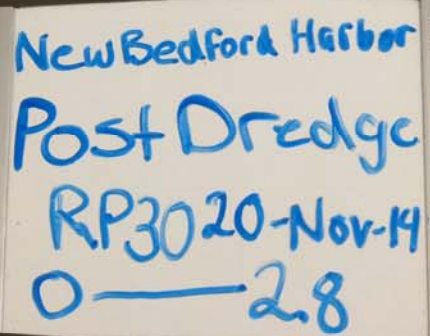 New Bedford Harbor
Post Dredge
RP30 20-Nov-14
0 — 2.8